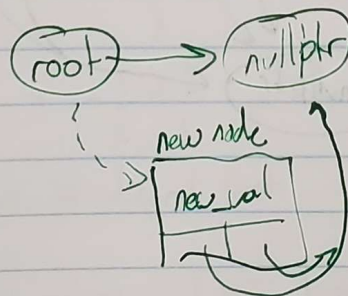 root
nullptr
new node
new_val